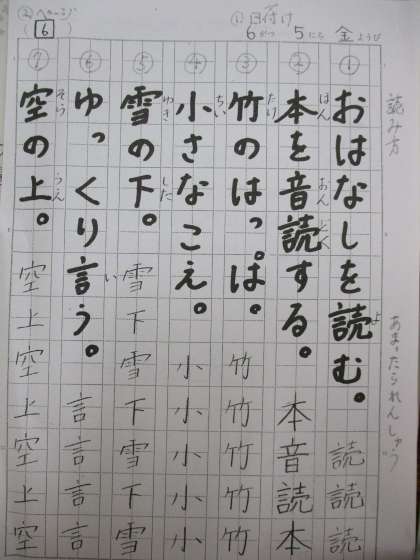 ①日付け
6がつ 5にち 金ようび
②ページ
(6)
読み方
①おはなしを読む。読読読
よ
②本を音読する。本音読本
ほん おん どく
③竹のはっぱ。竹竹竹竹竹
たけ
④小さなこえ。小小小小小
ちい
⑤雪の下。雪下雪下雪下雪
ゆき した
⑥ゆっくり言う。言言言言
い
⑦空の上。空上空上空上空
そら うえ